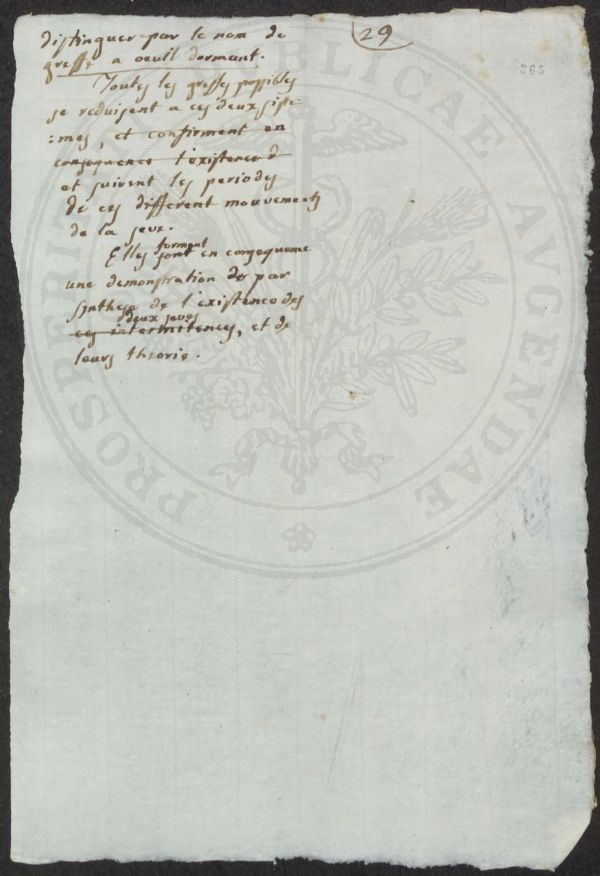 29
365
distinguer par le nom de
greffe a oeuil dormant.
Toutes les greffes possibles
se reduisent a ces deux siste-
:mes, et confirment en
consequence l'existence d
et suivent les periodes
de ces different mouvements
de la seve.
forment
Elles sont en consequence
une demonstration de par
synthese de l'existence des
deux seves
ces intermitences, et de
leurs theorie.
PROSPERITATI PUBLICAE AUGENDAE